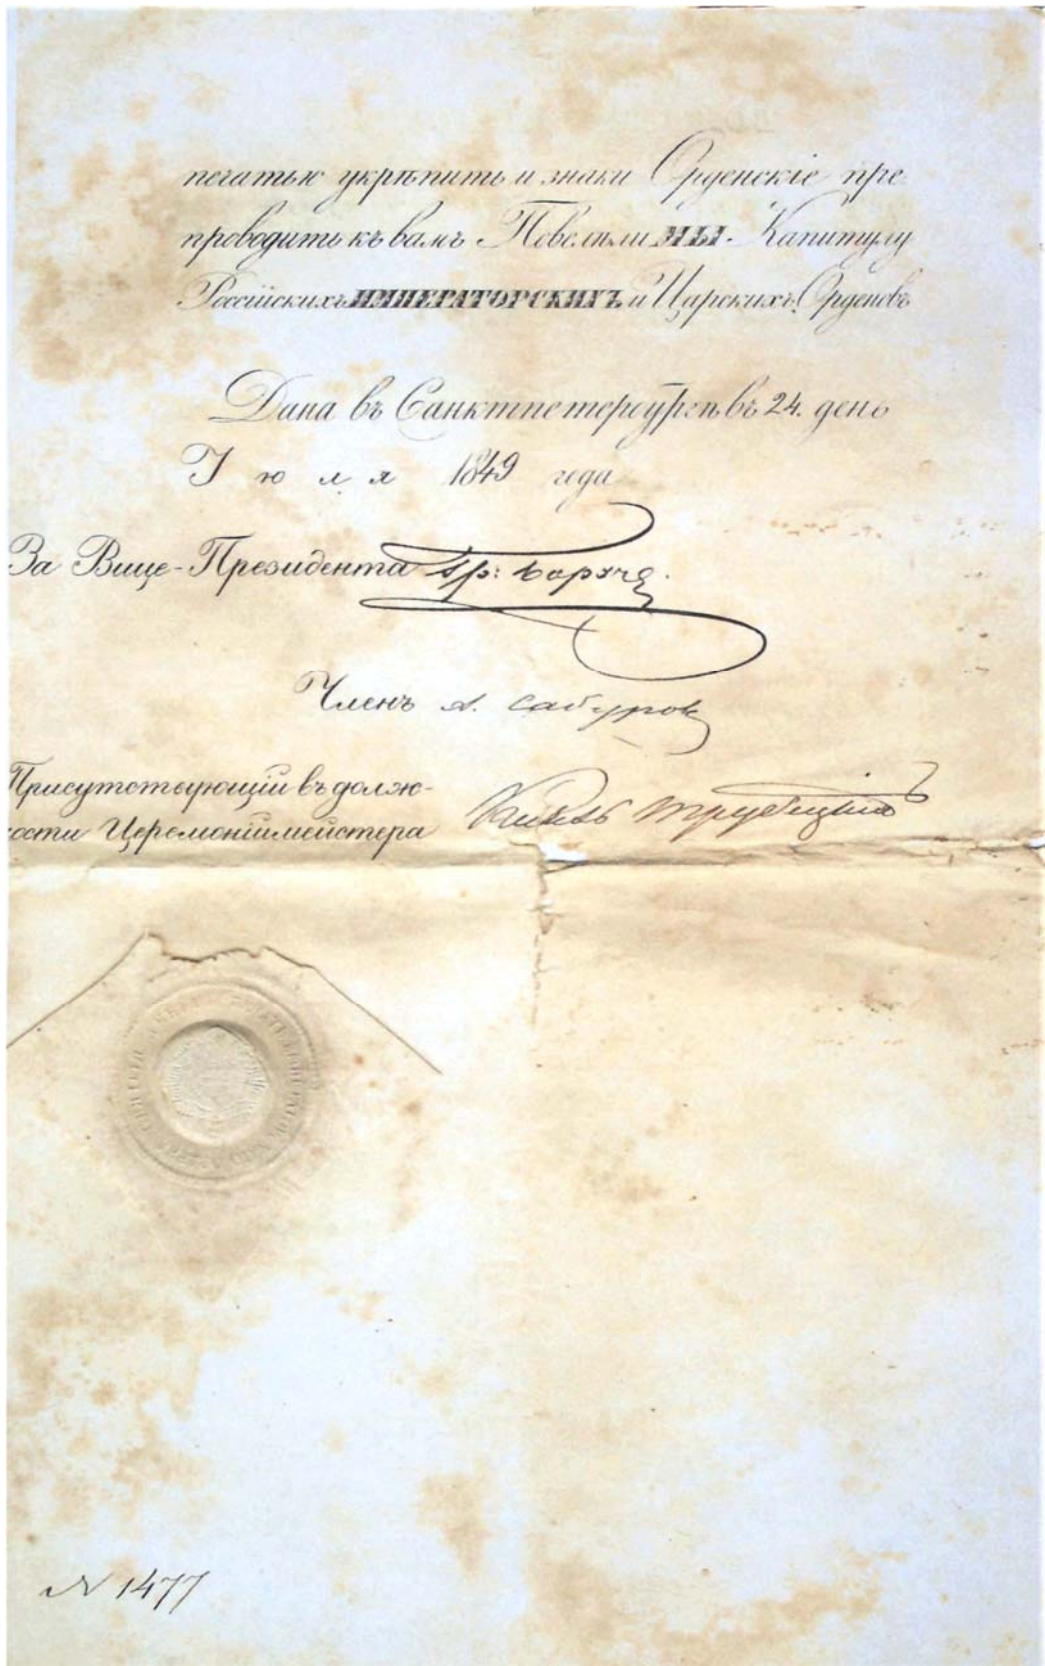 печатью укрѣпить и знаки Орденскіе пре
проводить къ вамъ Повелѣли МЫ. Капитулу
Россійскихъ ИМПЕРАТОРСКИХЪ и Царскихъ Орденовъ
Дана въ Санктпетербургѣ въ 24. день
Іюля 1849 года
За Вице-Президента Гр: Борхъ.
Членъ А. Сабуровъ
Присутствующій въ долж-
ности Церемоніймейстера Князь Трубецкій
N 1477